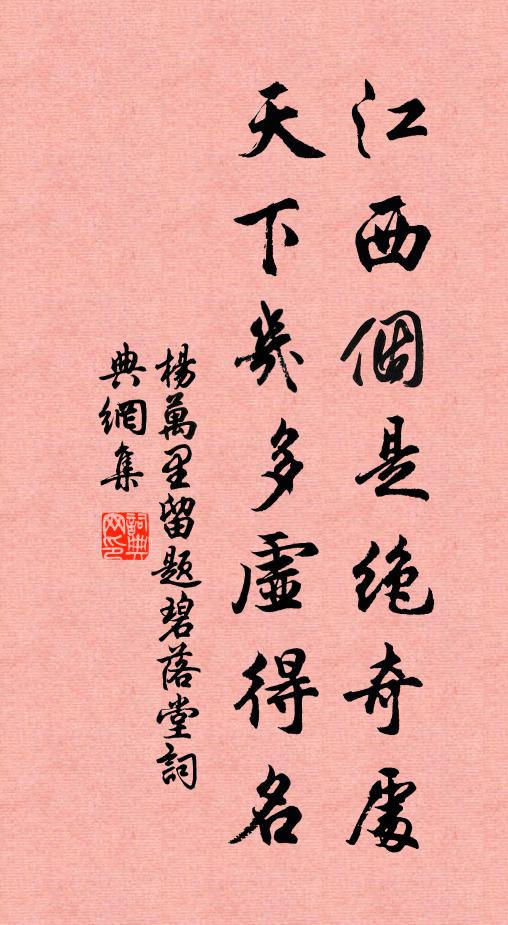 江西個是絶奇處
天下幾多虛得名
楊萬里留題碧落堂詞
典網集
詞典網印